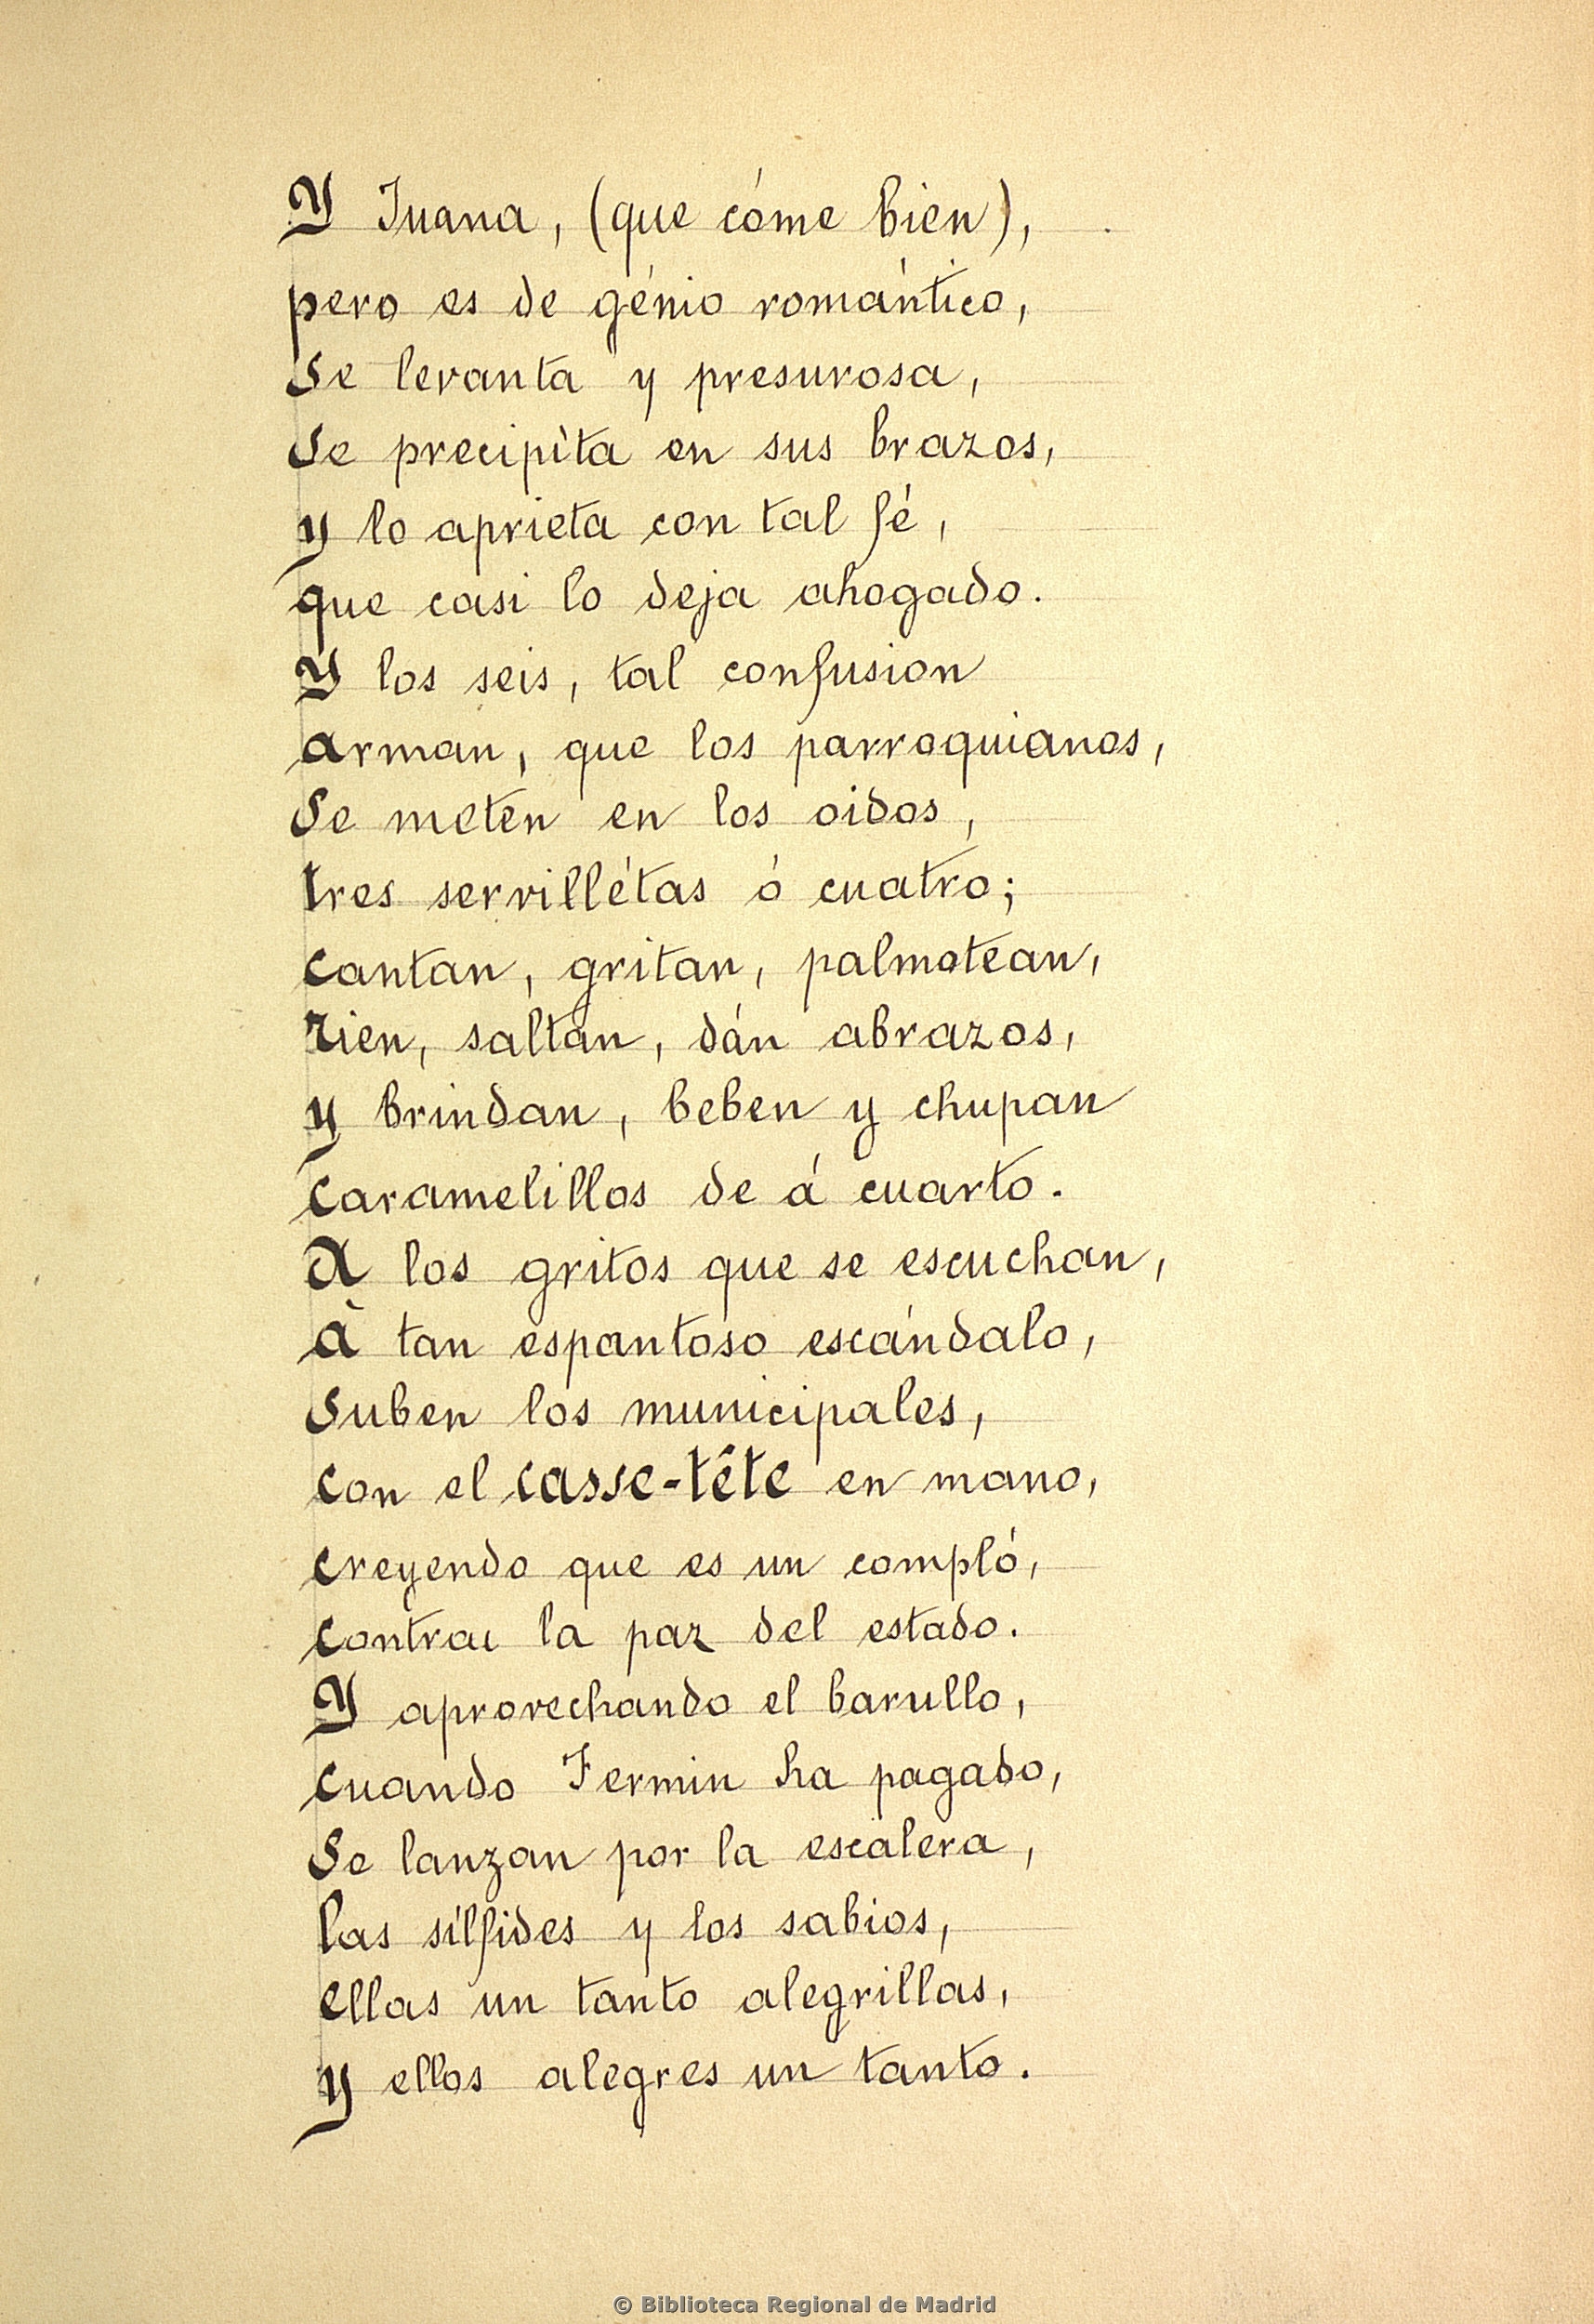 Y Juana, (que cóme bien),
pero es de génio romántico,
Se levanta y presurosa,
Se precipita en sus brazos,
y lo aprieta con tal fé,
que casi lo deja ahogado.
Y los seis, tal confusion
arman, que los parroquianos,
Se meten en los oidos,
tres servillétas ó cuatro;
cantan, gritan, palmotean,
rien, saltan, dán abrazos,
y brindan, beben y chupan
caramelillos de á cuarto.
A los gritos que se escuchan,
à tan espantoso escándalo,
Suben los municipales,
con el casse-tête en mano,
creyendo que es un compló,
contra la paz del estado.
Y aprovechando el barullo,
cuando Fermin ha pagado,
Se lanzan por la escalera,
las sílfides y los sabios,
ellas un tanto alegrillas,
y ellos alegres un tanto.
© Biblioteca Regional de Madrid